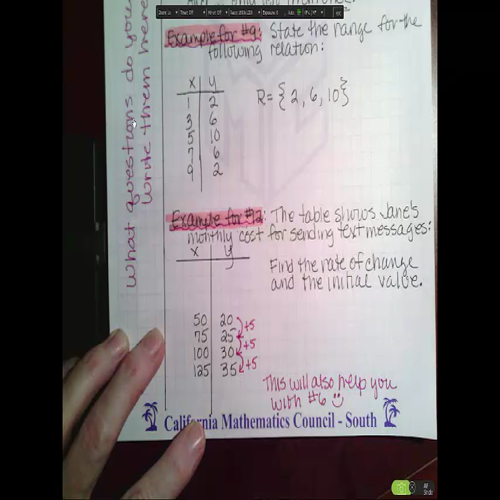 Example for #9: State the range for the
following relation:
x y
1 2
3 6
5 10
7 6
9 2
R = { 2, 6, 10 }
Example for #12: The table shows Jane's
monthly cost for sending text messages:
x y
Find the rate of change
and the initial value.
50 20
75 25
100 30
125 35
+5
+5
+5
This will also help you
with #6
California Mathematics Council - South
What questions do you
Write them here